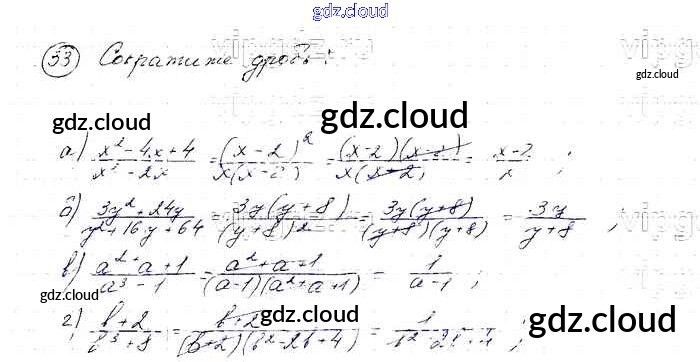 gdz.cloud
53 Сократите дробь:
gdz.cloud
gdz.cloud
gdz.cloud
а) x² - 4x + 4 / x² - 2x = (x - 2)² / x(x - 2) = (x - 2)(x - 2) / x(x - 2) = x - 2 / x ;
б) 3y² + 24y / y² + 16y + 64 = 3y(y + 8) / (y + 8)² = 3y(y + 8) / (y + 8)(y + 8) = 3y / y + 8 ;
в) a² + a + 1 / a³ - 1 = a² + a + 1 / (a - 1)(a² + a + 1) = 1 / a - 1 ;
gdz.cloud
gdz.cloud
gdz.cloud
г) b + 2 / b³ + 8 = b + 2 / (b + 2)(b² - 2b + 4) = 1 / b² - 2b + 4 ;